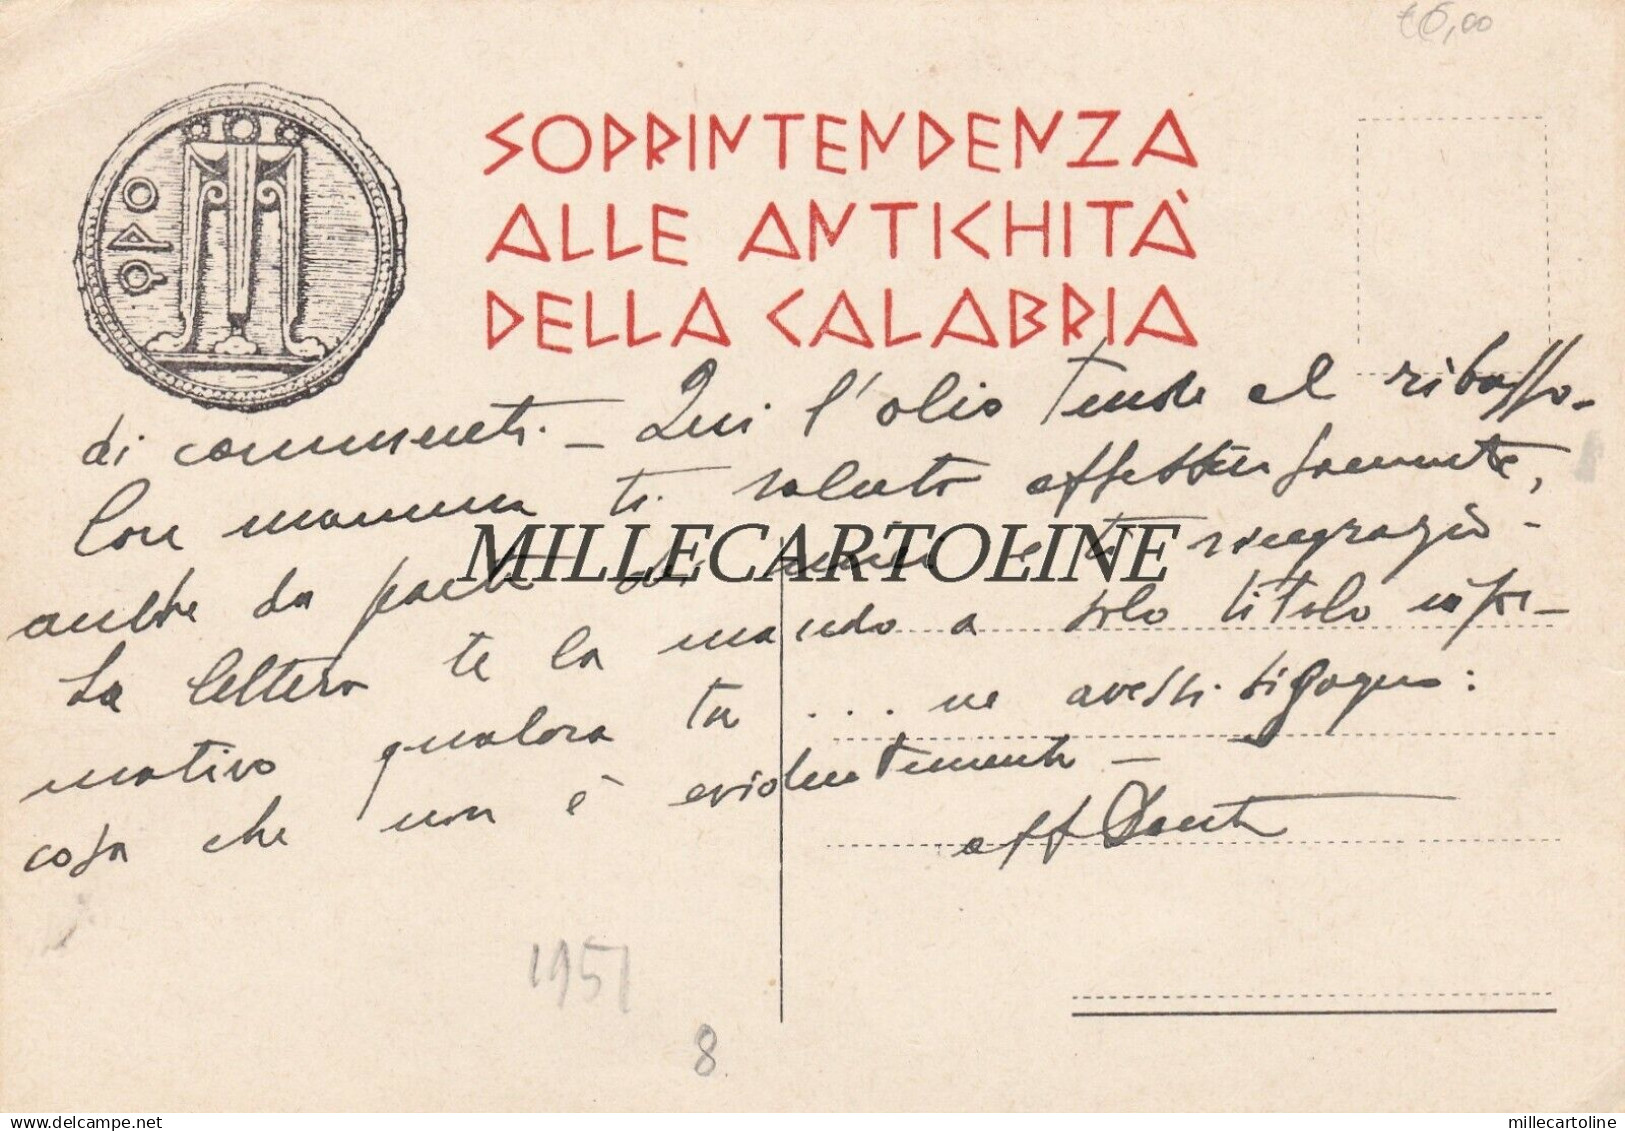 € 6,00
SOPRINTENDENZA
ALLE ANTICHITÀ
DELLA CALABRIA
ϘΔΟ
di commenti. – Qui l'olio tende al ribasso.
Con mamma ti saluto affettuosamente,
anche da parte di e ti ringrazio -
La lettera te la mando a solo titolo infor-
mativo qualora tu ... ne avessi bisogno:
cosa che non è evidentemente –
aff Dante
MILLECARTOLINE
1951
8
delcampe.net
millecartoline